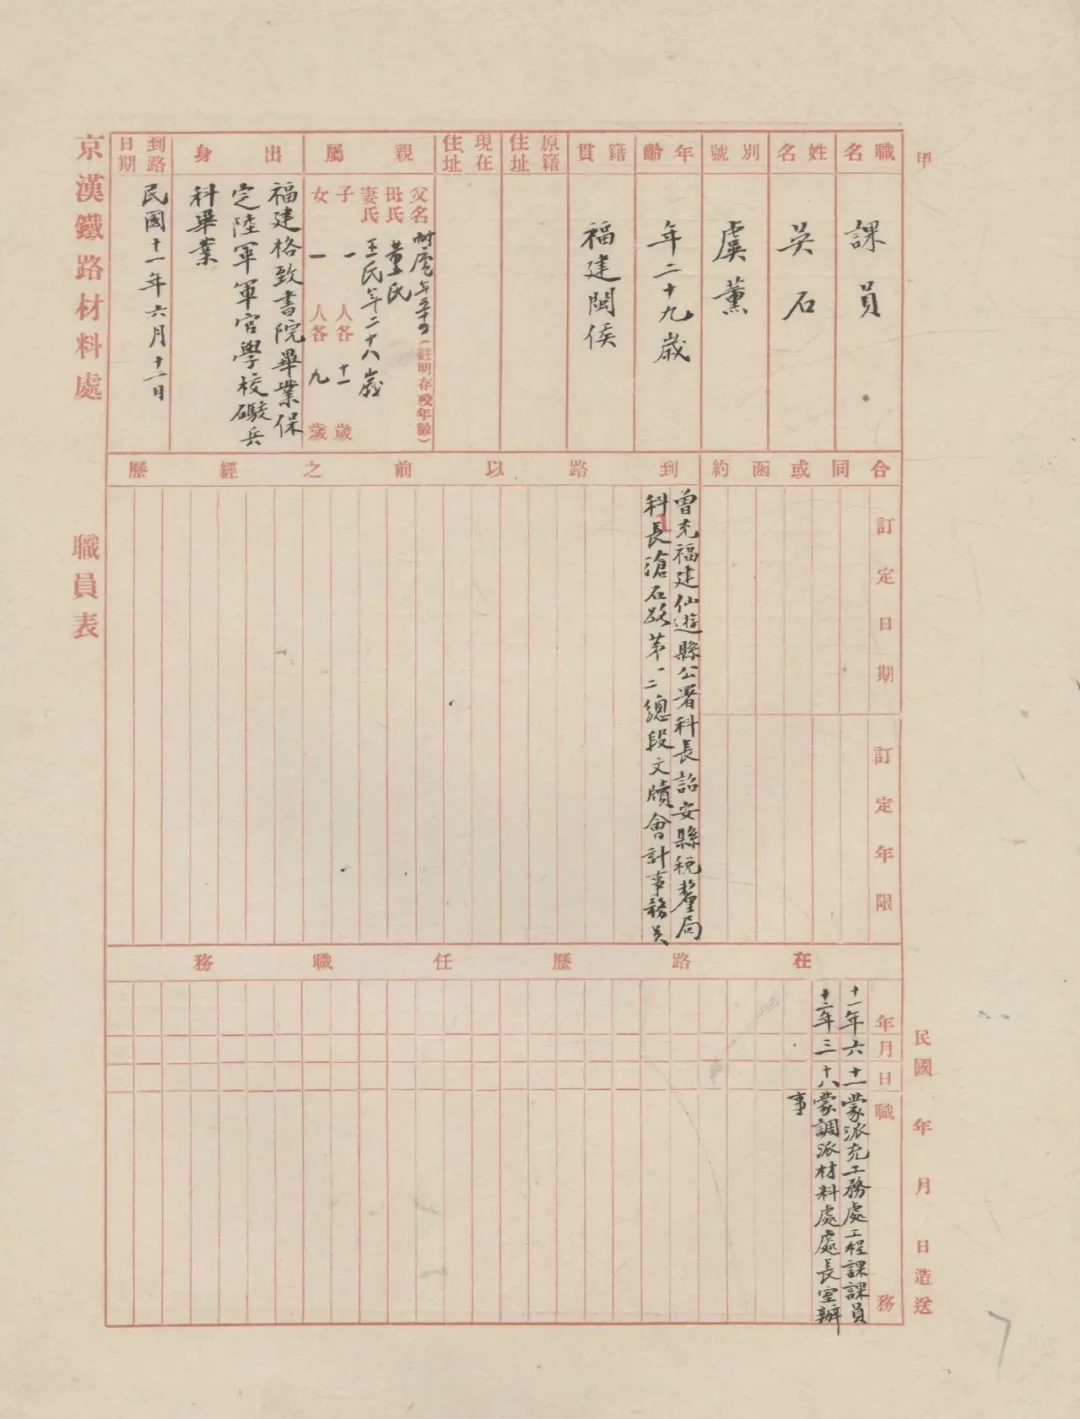 甲
職名
課員
姓名
吳石
別號
虞薰
年齡
年二十九歲
籍貫
福建閩侯
原籍住址
現在住址
親屬
父名
年五十四（註明存歿年齡）
母氏 董氏
妻氏 王氏年二十八歲
子 一 人各 十一 歲
女 一 人各 九 歲
出身
福建格致書院畢業保
定陸軍軍官學校礮兵
科畢業
到路日期
民國十一年六月十二日
合同或函約
訂定日期
訂定年限
到路以前之經歷
曾充福建仙遊縣公署科長詔安縣稅釐局
科長滄石路第一二總段文牘會計事務員
在路歷任職務
年月日職務
十一年六十一蒙派充工務處工程課課員
十二年三十八蒙調派材料處處長室辦
事
民國 年 月 日造送
京漢鐵路材料處 職員表
7